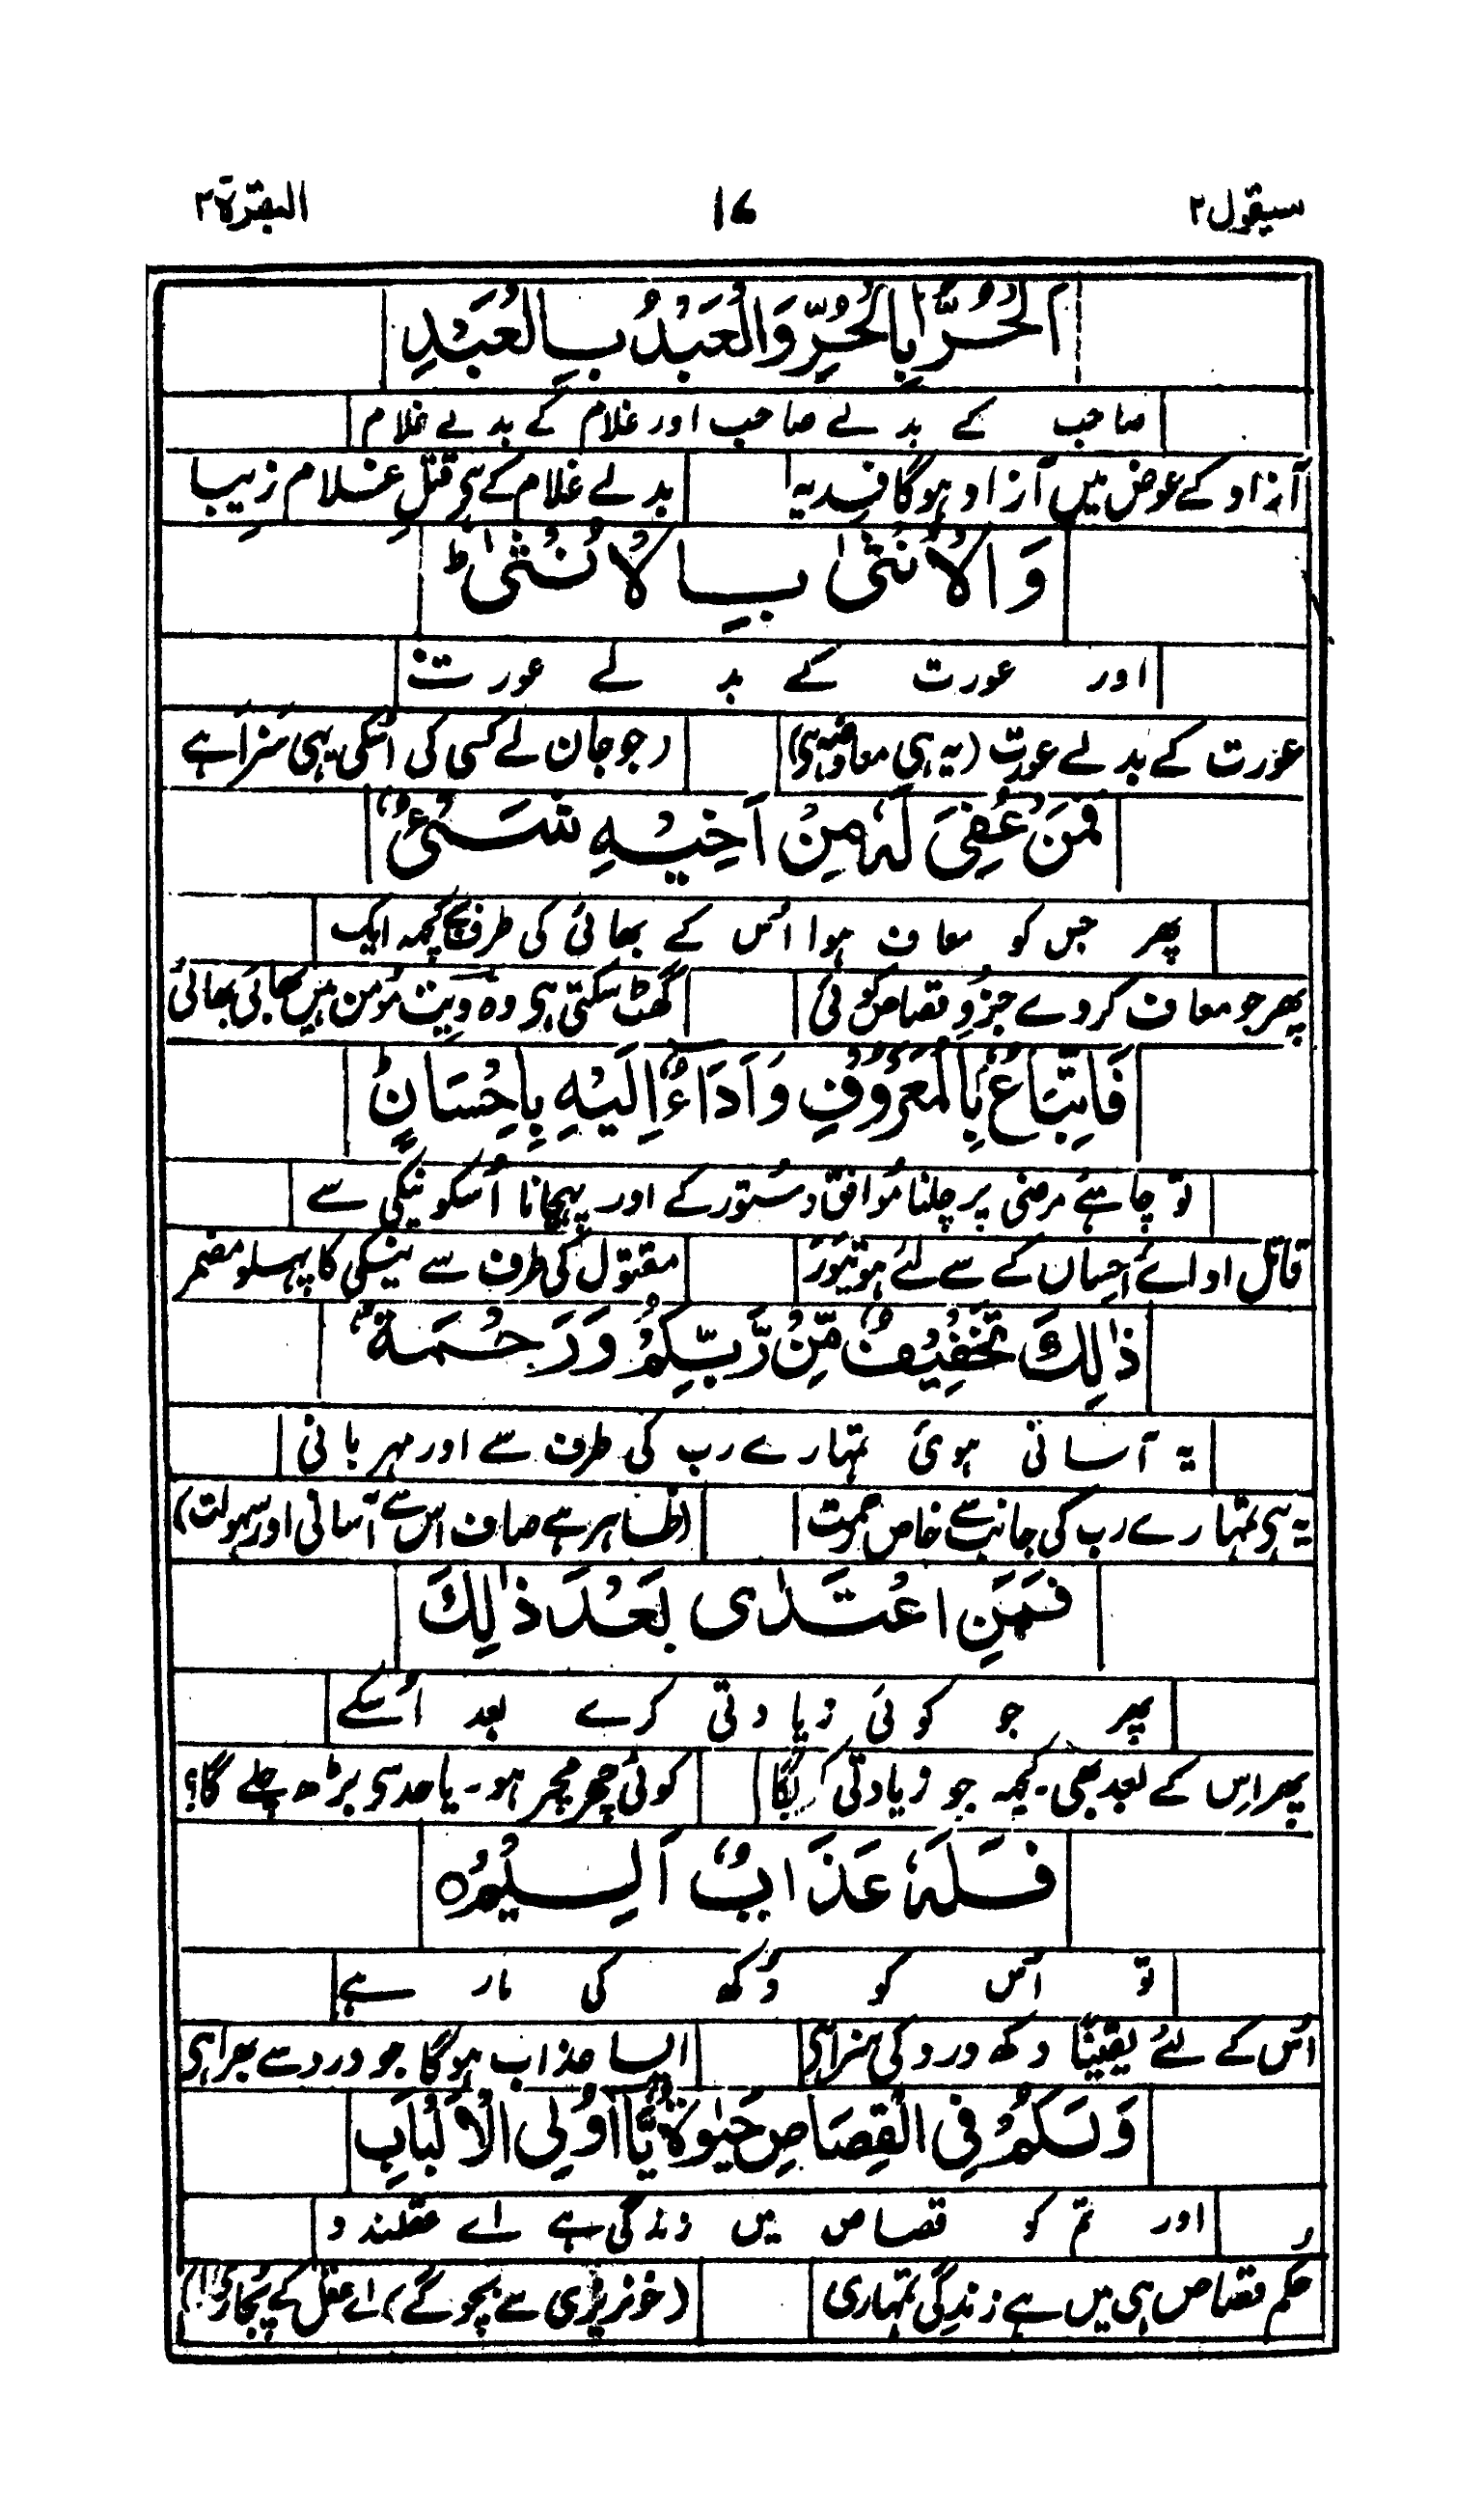 سیقول ۲ ۱۷ البقرۃ ۲
اَلْحُرُّ بِالْحُرِّ وَالْعَبْدُ بِالْعَبْدِ
صاحب کے بدلے صاحب اور غلام کے بدلے غلام
آزاد کے عوض میں آزاد ہوگا فدیہ بدلے غلام کے ہی قتلِ غلام زیبا
وَالْاُنْثٰی بِالْاُنْثٰی ؕ
اور عورت کے بدلے عورت
عورت کے بدلے عورت (یہ ہی معاوضہ ہی) (جو جان لے کسی کی اسکی یہی سزا ہے
فَمَنْ عُفِیَ لَہٗ مِنْ اَخِیْہِ شَیْءٌ
پھر جس کو معاف ہوا اُس کے بھائی کی طرف سے کچھ ایک
پھر جو معاف کر دے جزوِ قصاص کوئی گھٹ سکتی ہی وہ دِیت مومن ہیں بھائی بھائی
فَاتِّبَاعٌۢ بِالْمَعْرُوْفِ وَاَدَآءٌ اِلَیْہِ بِاِحْسَانٍ ؕ
تو چاہئے مرضی پر چلنا موافق دستور کے اور پہچانا اُسکو نیکی سے
قاتل ادائے احساں کے سے لئے ہو تیور مقتول کی طرف سے نیکی کا پہلو مضمر
ذٰلِکَ تَخْفِیْفٌ مِّنْ رَّبِّکُمْ وَرَحْمَۃٌ ؕ
یہ آسانی ہوئی تمہارے رب کی طرف سے اور مہربانی
یہ ہی تمہارے رب کی جانب سے خاص رحمت (ظاہر ہے صاف اس سے آسانی اور سہولت)
فَمَنِ اعْتَدٰی بَعْدَ ذٰلِکَ
پھر جو کوئی زیادتی کرے بعد اُسکے
پھر اِس کے بعد بھی۔ کچھ جو زیادتی کریگا کوئی ہو۔ یا حد سی بڑھ چلے گا؟
فَلَہٗ عَذَابٌ اَلِیْمٌ ○
تو اُس کو دُکھ کی مار ہے
اُس کے لئے یقیناً دکھ درد کی سزا ہی ایسا عذاب ہوگا جو درد سے بھرا ہی
وَلَکُمْ فِی الْقِصَاصِ حَیٰوۃٌ یّٰۤاُولِی الْاَلْبَابِ
اور تم کو قصاص میں زندگی ہے اے عقلمندو
حکم قصاص ہی میں ہے زندگی تمہاری (خونریزی سے بچو گے) اے عقل کے پجاری!